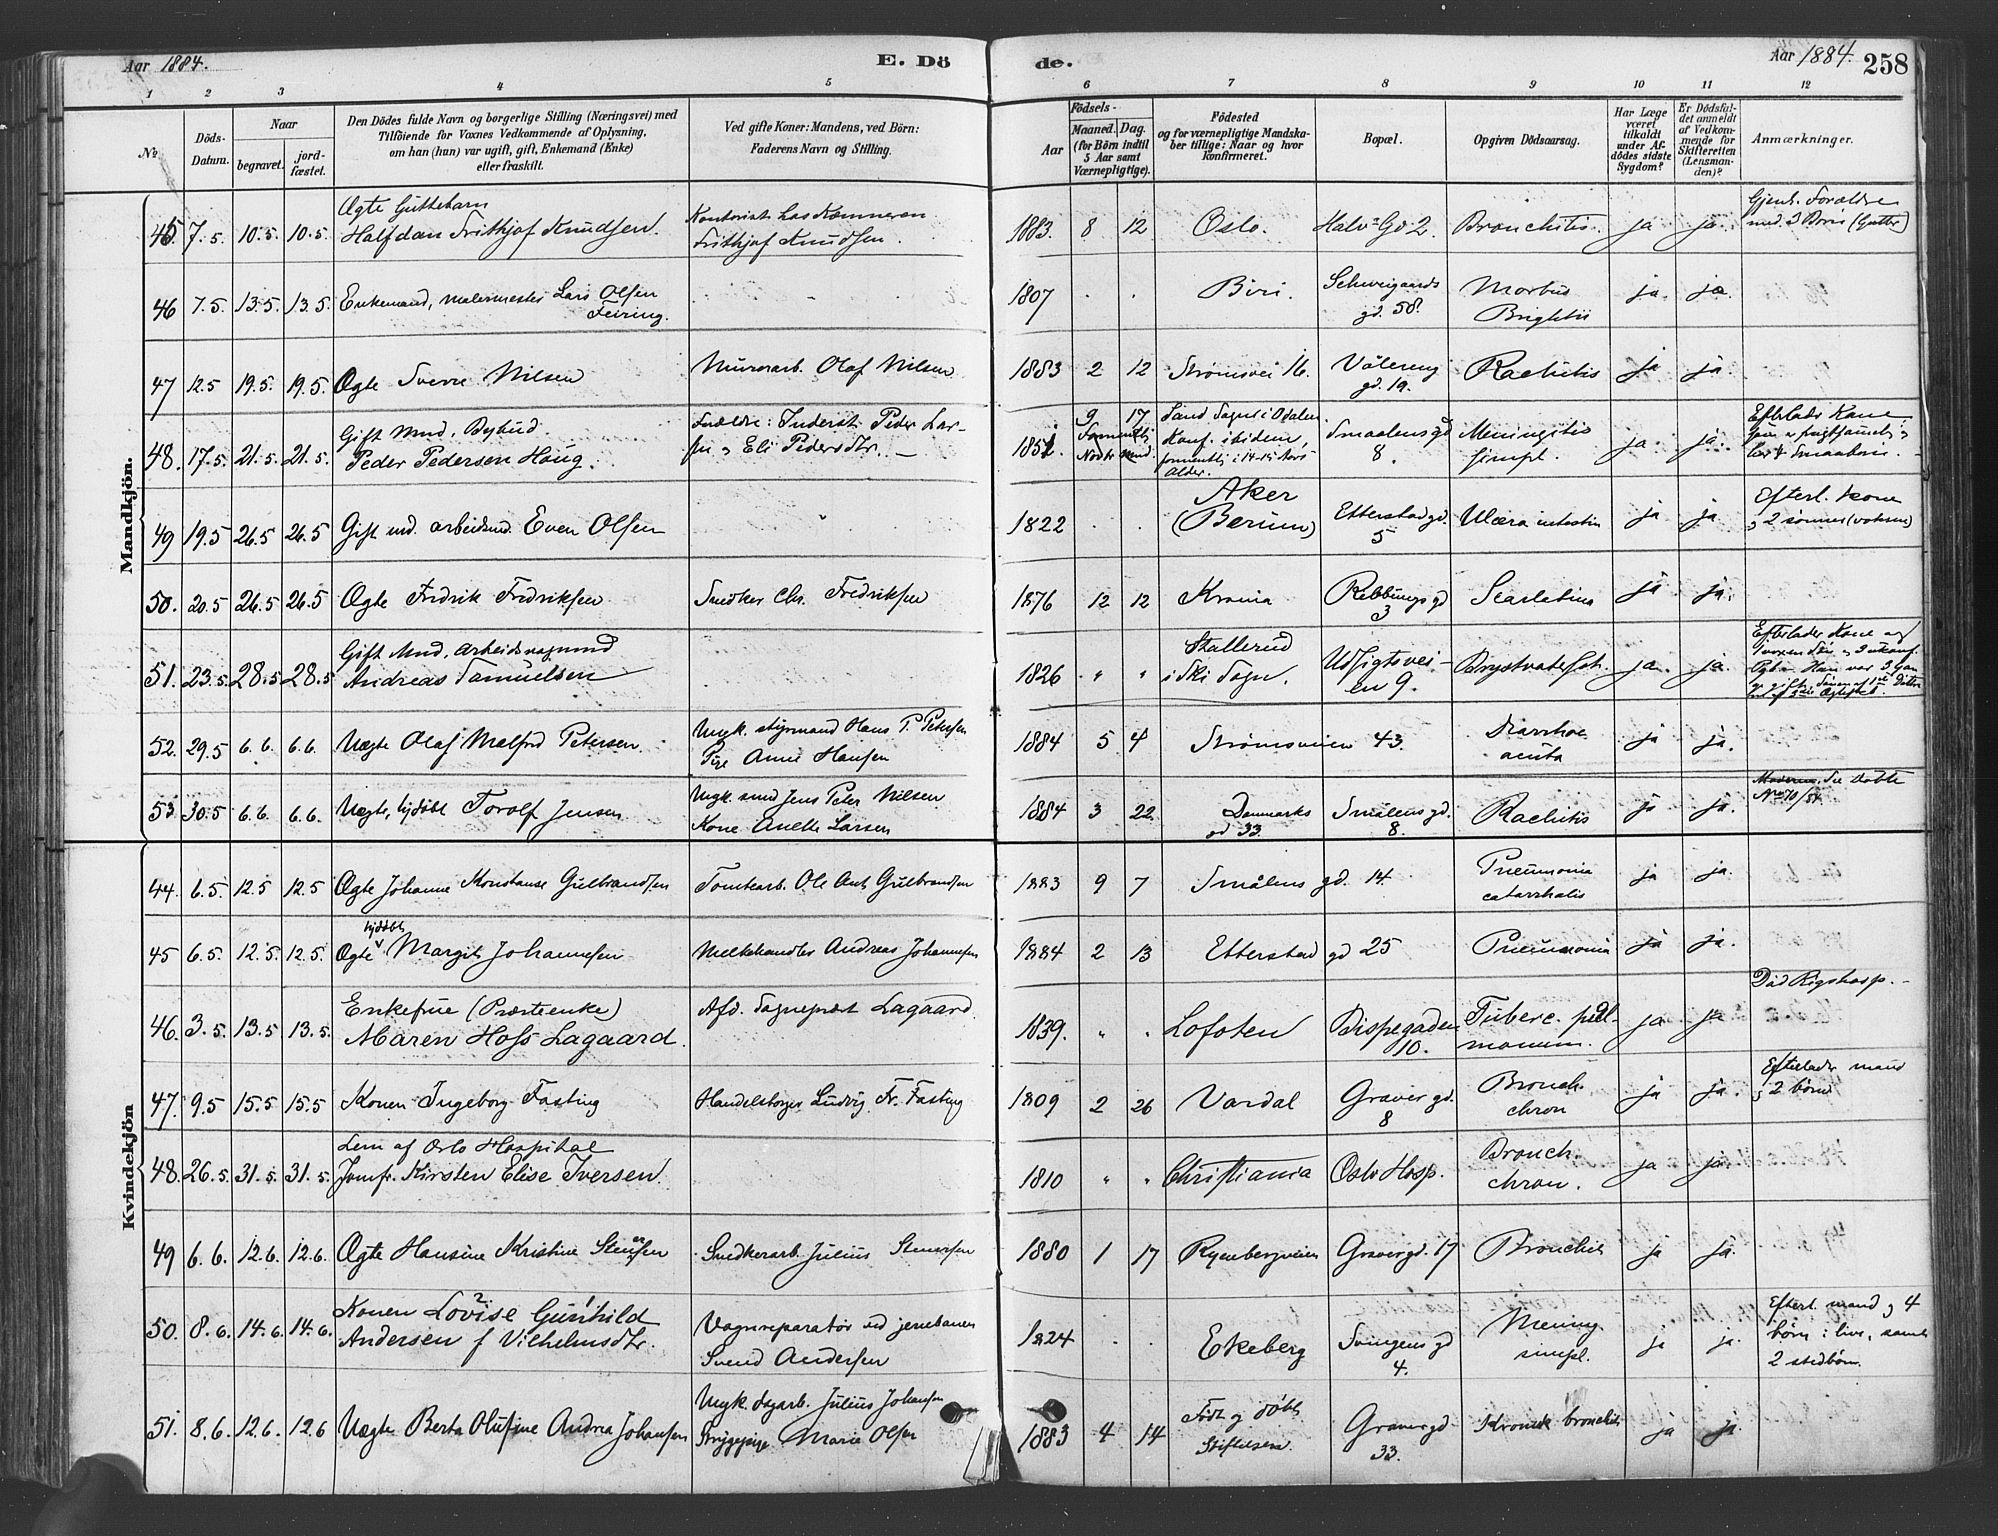 Aar 1884.
E. Dö
de.
Aar 1884.
258
1 2 3 4 5 6 7 8 9 10 11 12
№
Döds-Datum.
Naar
begravet. jordfæstet.
Den Dödes fulde Navn og borgerlige Stilling (Næringsvei) med
Tilföiende for Voxnes Vedkommende af Oplysning,
om han (hun) var ugift, gift, Enkemand (Enke)
eller fraskilt.
Ved gifte Koner: Mandens, ved Börn:
Faderens Navn og Stilling.
Födsels-
Aar
Maaned. Dag.
(for Börn indtil
5 Aar samt
Værnepligtige).
Födested
og for værnepligtige Mandska-
ber tillige: Naar og hvor
konfirmeret.
Bopæl.
Opgiven Dödsaarsag.
Har Læge
været
tilkaldt
under Af-
dödes sidste
Sygdom?
Er Dödsfal-
det anmeldt
af Vedkom-
mende for
Skifteretten
(Lensman-
den)?
Anmærkninger.
Mandkjön.
45 7.5. 10.5. 10.5. Ægte Guttebarn
Halfdan Frithjof Knudsen.
Kontorist
Frithjof Knudsen.
1883. 8 12 Oslo. Halv. Gd 2. Bronchitis. ja ja.
46 7.5. 13.5. 13.5. Enkemand, malermester Lars Olsen
Feiring.
1807 Biri. Schweigaards
gd. 58. Morbus
Brightii ja. ja.
47 12.5 19.5. 19.5. Ægte Sverre Nilsen
Murerarb. Olaf Nilsen
1883 2 12 Strømsvei 16. Vålereng
gd. 19. Rachitis ja ja.
48. 17.5. 21.5. 21.5. Gift Mnd. Bybud
Peder Pedersen Houg.
Forældre: Inderst Peder Lar-
sen og Eli Pedersdtr.
1851. 9 17 Sand Sogn i Odalen
Konf. ibidem,
formentlig i 14-15 Aars
Alder.
Smaalensgd
8. Meningitis
simpl. ja. ja. Efterlader Kone
49 19.5 26.5 26.5 Gift md. arbeidsmd. Even Olsen
1822 Aker
(Berum) Etterstad gd.
5 Ulcera intestin ja ja Efterl. kone
og 2 sønner (voksne)
50. 20.5 26.5 26.5 Ægte Fredrik Fredriksen
Snedker Chr. Fredriksen
1876 12 12 Krania Rebbungs gd
3 Scarlatina ja ja.
51. 23.5 28.5 28.5 Gift Mnd, arbeidsvognmd
Andreas Samuelsen
1826 Stallerud
i Ski Sogn. Udsigtsvei-
en 9. Brystvatersot. ja. ja. Efterlader Kone og
52. 29.5 6.6. 6.6. Uægte Olaf Malfred Petersen.
Ungk. styrmand Hans P. Petersen
Pige Anne Hansen
1884 5 4 Strømsveien 43. Diarrhoe
acuta ja ja.
53 30.5 6.6. 6.6. Uægte, hjdøbt Torolf Jensen
Ungk. smed Jens Peter Nilsen
Kone Anette Larsen
1884 3 22 Danmarks
gd 33. Smålens gd.
8. Rachitis ja ja. Se Døbte
No 70/84
Kvindekjön
44. 6.5. 12.5 12.5 Ægte Johanne Konstanse Gulbrandsen
Tomtearb. Ole Ant. Gulbrandsen
1883 9 7 Smålens gd. 14. Pneumonia
catarrhalis ja ja.
45 6.5. 12.5. 12.5. Ægte hjdøbt Margit Johannesen
Melkehandler Andreas Johannesen
1884 2 13 Etterstad gd 25 Pneumonia ja ja.
46 3.5. 13.5 13.5. Enkefrue (Præsteenke)
Maren Hofs Lagaard.
Afd. Sognepræst Lagaard.
1839. Lofoten Bispegaden
10. Tuberc. pul-
monum. ja ja Død Rigshosp.
47. 9.5 15.5 15.5 Konen Ingeborg Fasting
Handelsborger Ludvig Fr. Fasting
1809 2 26 Vardal Graver gd.
8 Bronch.
chron ja ja. Efterlader mand
og 2 børn
48. 26.5. 31.5. 31.5. Lem af Oslo Hospital
Jomfr. Kirsten Elise Iversen.
1810 Christiania Oslo Hosp. Bronch.
chron. ja ja.
49 6.6. 12.6. 12.6. Ægte Hansine Kristine Stenersen
Snedkerarb. Julius Stenersen
1880 1 17 Ryenbergveien Gravergd. 17 Bronchit ja ja.
50. 8.6. 14.6. 14.6. Konen Lovise Gunhild
Andersen f. Vilhelmsdtr.
Vognreparatør ved jernebanen
Svend Andersen
1824 Ekeberg Svingens gd
4. Mening.
simpl. ja ja. Efterl. mand og 4
børn i live, samt
2 stedbørn.
51. 8.6. 12.6. 12.6 Uægte Berta Olufine Andrea Johansen
Ungk. dagarb. Julius Johansen
Strygepige Marie Olsen
1883 4 14 Født og døbt
Stiftelsen. Graver gd
33. Kronisk bronchit ja ja.